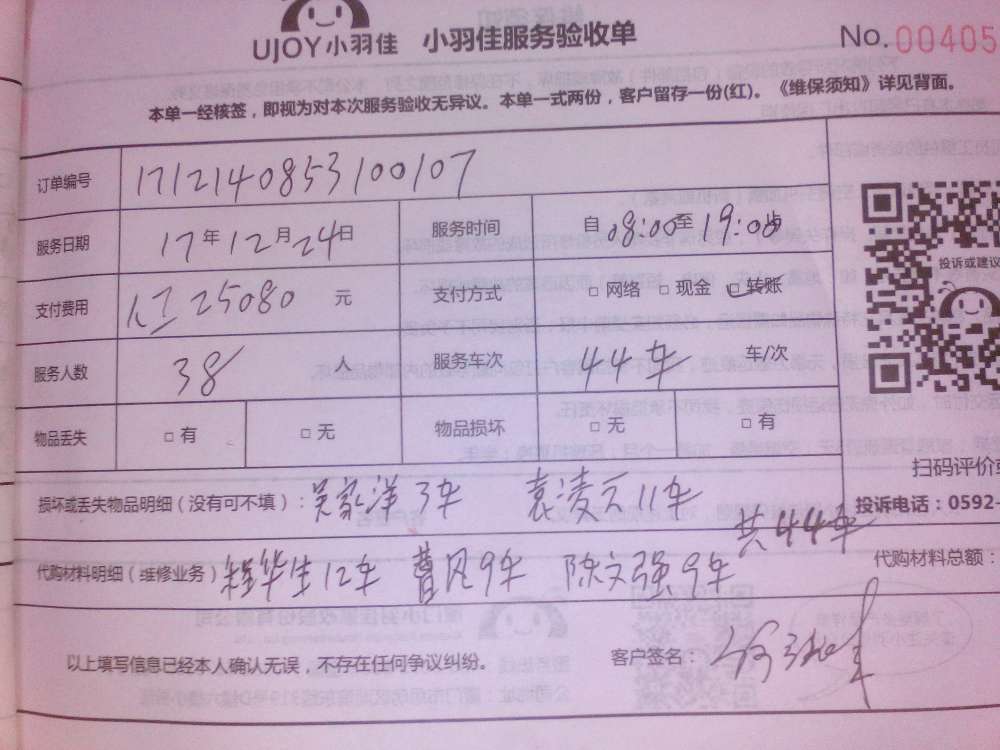 UJOY小羽佳 小羽佳服务验收单 No. 00405
本单一经核签，即视为对本次服务验收无异议。本单一式两份，客户留存一份(红)。《维保须知》详见背面。
订单编号 1712140853100107
服务日期 17年12月24日 服务时间 自08:00至19:00
支付费用 25080 元 支付方式 □ 网络 □ 现金 □ 转账
服务人数 38 人 服务车次 44车 车/次
物品丢失 □ 有 □ 无 物品损坏 □ 无 □ 有
投诉或建议
扫码评价或
损坏或丢失物品明细（没有可不填）：吴家洋3车 袁凌云11车
投诉电话：0592-
共44车
代购材料明细（维修业务） 程华生12车 曹风9车 陈文强9车
代购材料总额：
以上填写信息已经本人确认无误，不存在任何争议纠纷。 客户签名：